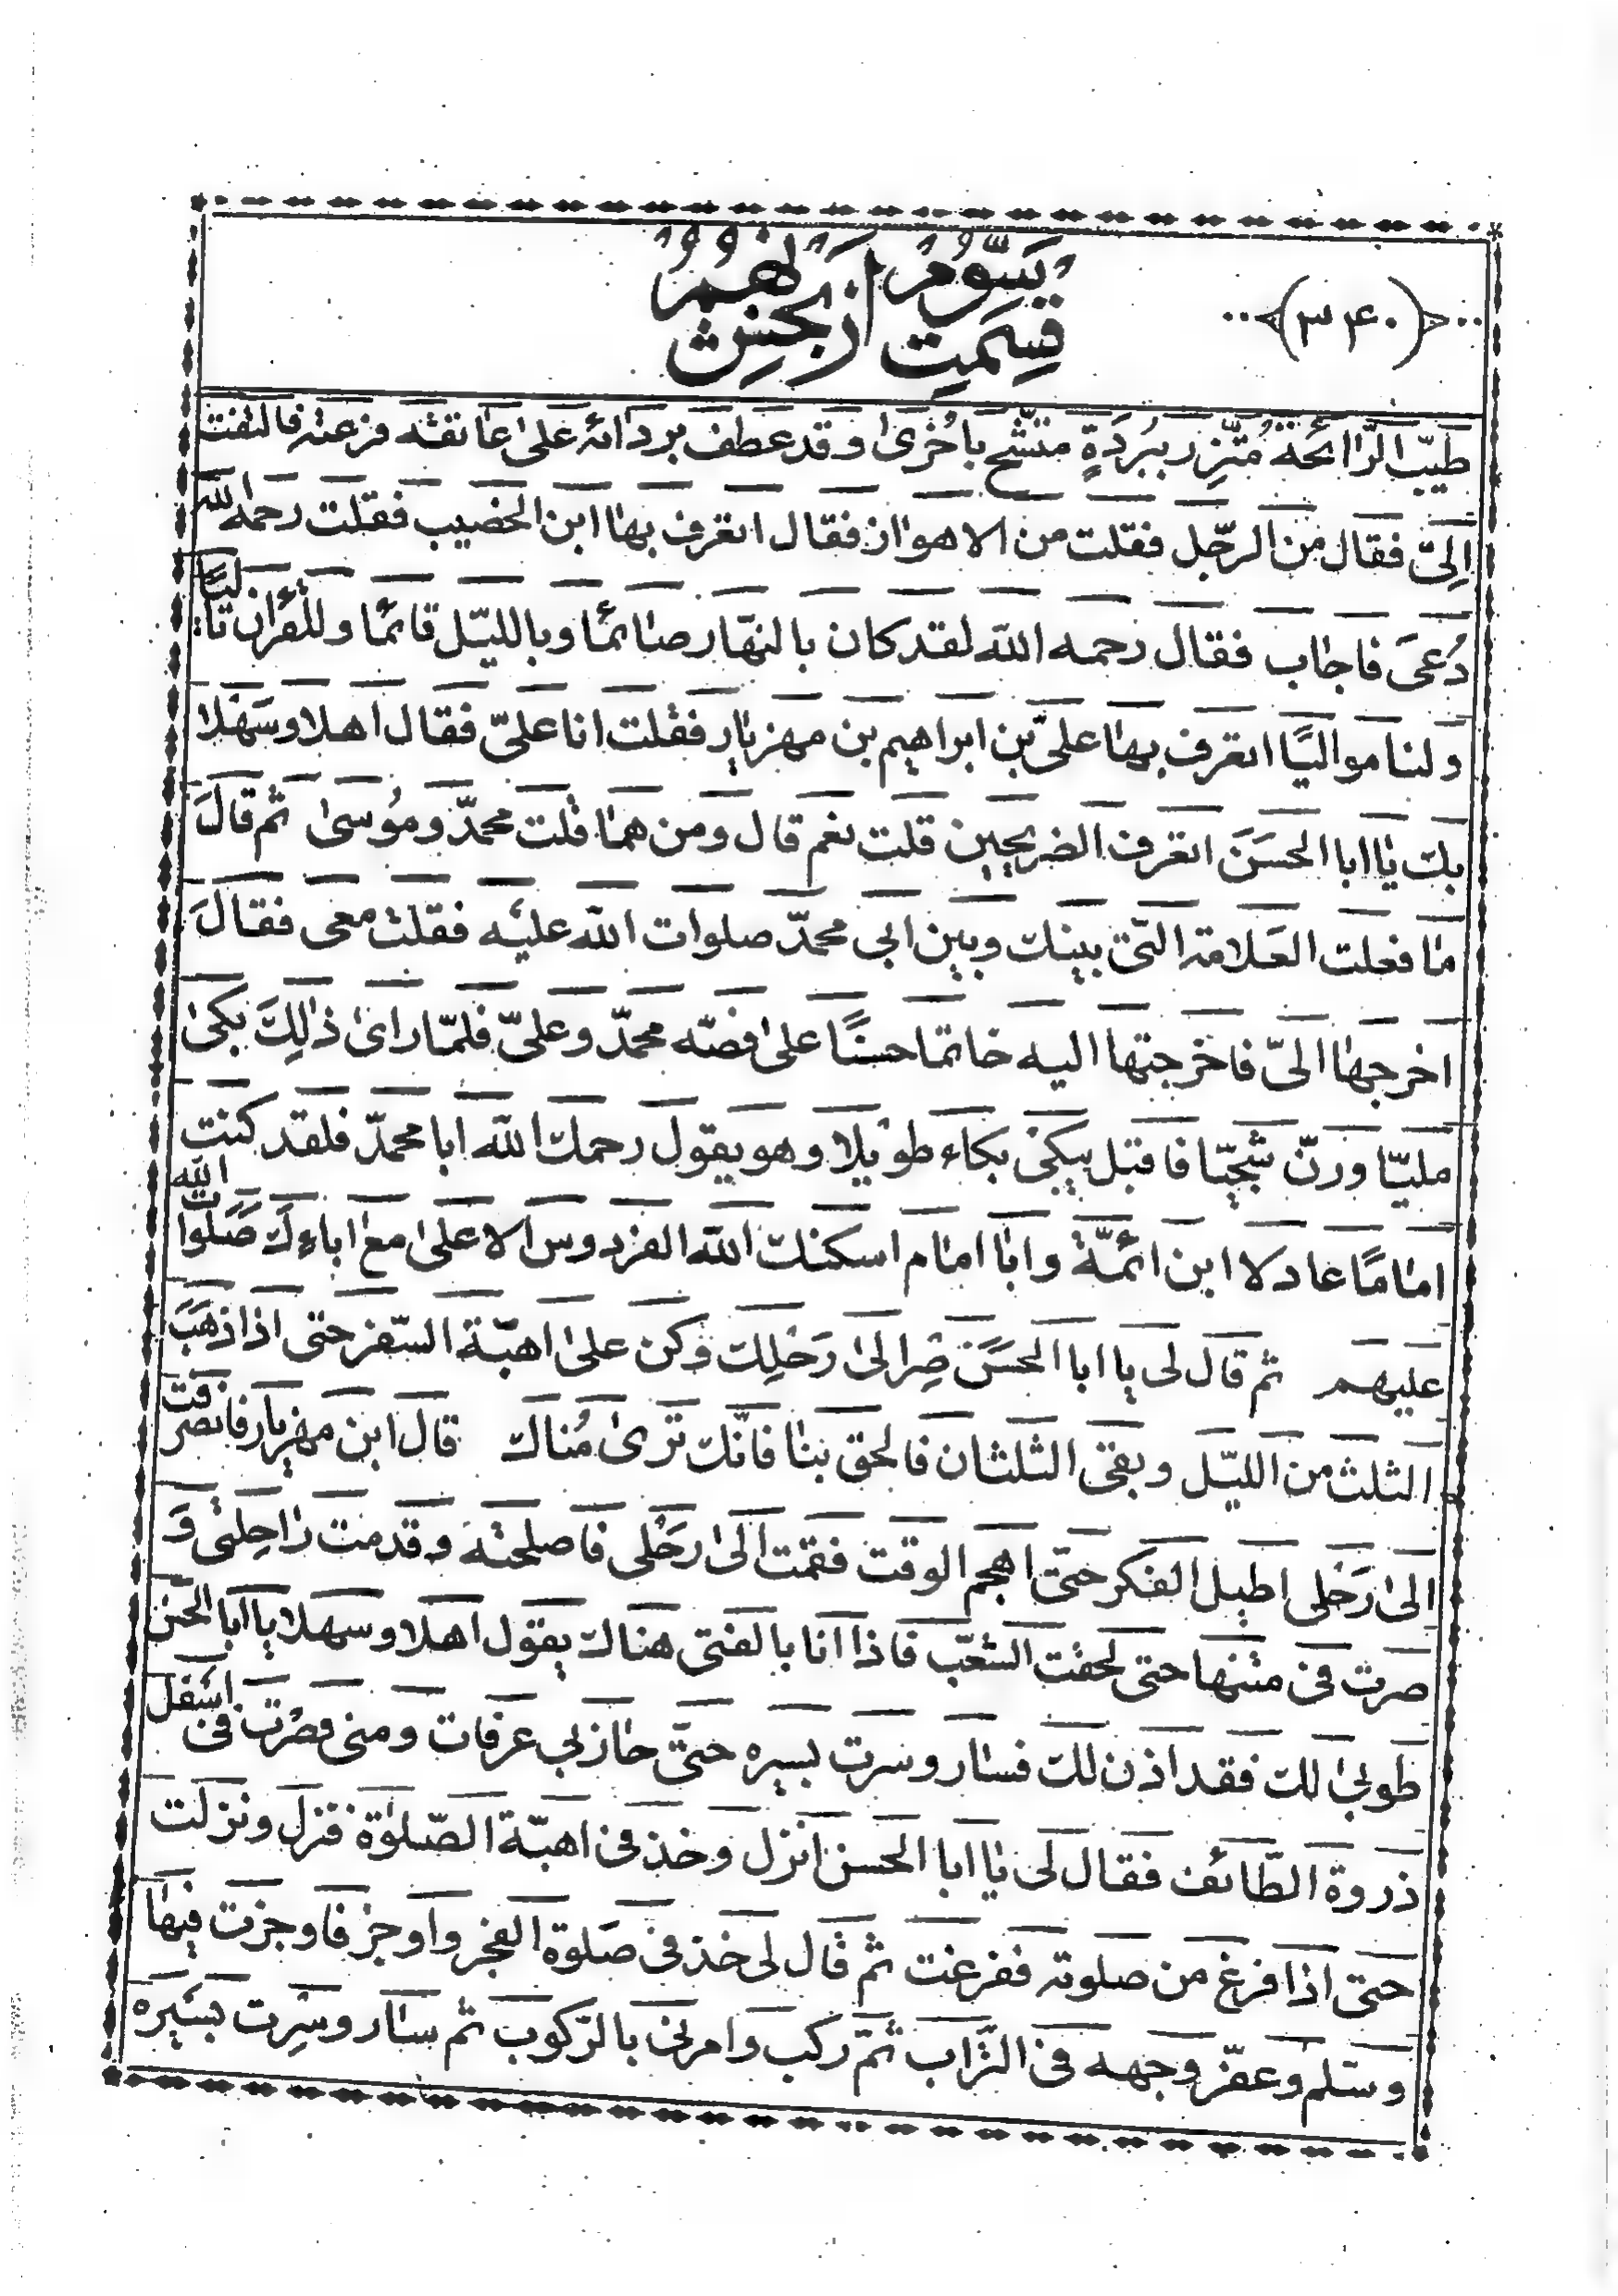 ﴿۳۴۰﴾
قِسمَتِ سِّوُم از بخشِ نهُم
طَيّب الرّٰائحَة مُتَّزِر ببُردَةٍ متشّح باُخرَىٰ وقد عطف بردائه علىٰ عٰاتقه فرعته فالتفت
اِلىّ فقال من الرجّل فقلت من الاهواز فقال اتعرف بهٰا ابن الخضيب فقلت رحمه الله
دُعىَ فاجٰاب فقال رحمه الله لقد كان بالنهّار صٰائمًا وبالليّل قائمًا وللقُرٰان تاليًا
ولنا مواليًا اتعرف بهٰا علىّ بن ابراهيم بن مهزيٰار فقلت انا علىّ فقال اهلا وسَهْلا
بك يٰا ابا الحسَنَ اتعرف الضريحين قلت نعم قال ومن همٰا قلت محمدّ ومُوسىٰ ثم قالَ
مٰا فعلت العَلامة التّى بينك وبين ابى محمدّ صلوات الله عليْه فقلت معى فقالَ
اخرجهٰا الىّ فاخرجتها اليه خاتما حسنًا علىٰ فصّه محمدّ وعلىّ فلمّا راىٰ ذٰلِكَ بكىٰ
مليّا ورنّ شجيّا فاقبل يبكى بكاء طويلا وهو يقول رحمك الله ابا محمدّ فلقد كنت
امٰامًا عادلا ابن ائمّة وابٰا امام اسكنك الله الفردوس الاعلىٰ معٰ اباءِكَ صَلَوات الله
عليهم ثم قال لى يا ابا الحسَن صِر الىٰ رَحْلِك وكن علىٰ اهبّة السّفر حتى اذا ذهَبَ
الثلث من الليّل وبقى الثلثان فالحق بنٰا فانّك ترىٰ مُناك قال ابن مهزيار فانصرفت
الىٰ رَحْلى اطيل الفكر حتىّ اهجم الوقت فقمت الىٰ رَحْلى فاصلحته وقدمت رٰاحِلتى وَ
صرت فى متنها حتى لحقت الشعّب فاذا انا بالفتى هناك يقول اهلا وسهلا يا ابا الحسن
طوبىٰ لك فقد اذن لك فسٰار وسرت بسيره حتىّ جٰاز بى عرفات ومنى فصْرت فى اسْفل
ذروة الطّائف فقال لى يٰا ابا الحسن انزل وخذ فى اهبّة الصّلوٰة فنزل ونزلت
حتى اذا فرغ من صلوته ففرغت ثم قال لى خذ فى صَلوة الفجر واوجز فاوجزت فيهٰا
وسَلم وعفّر وجهه فى التّراب ثمّ ركب وامرنى بالرّكوب ثم سٰار وسِرت بسَيره